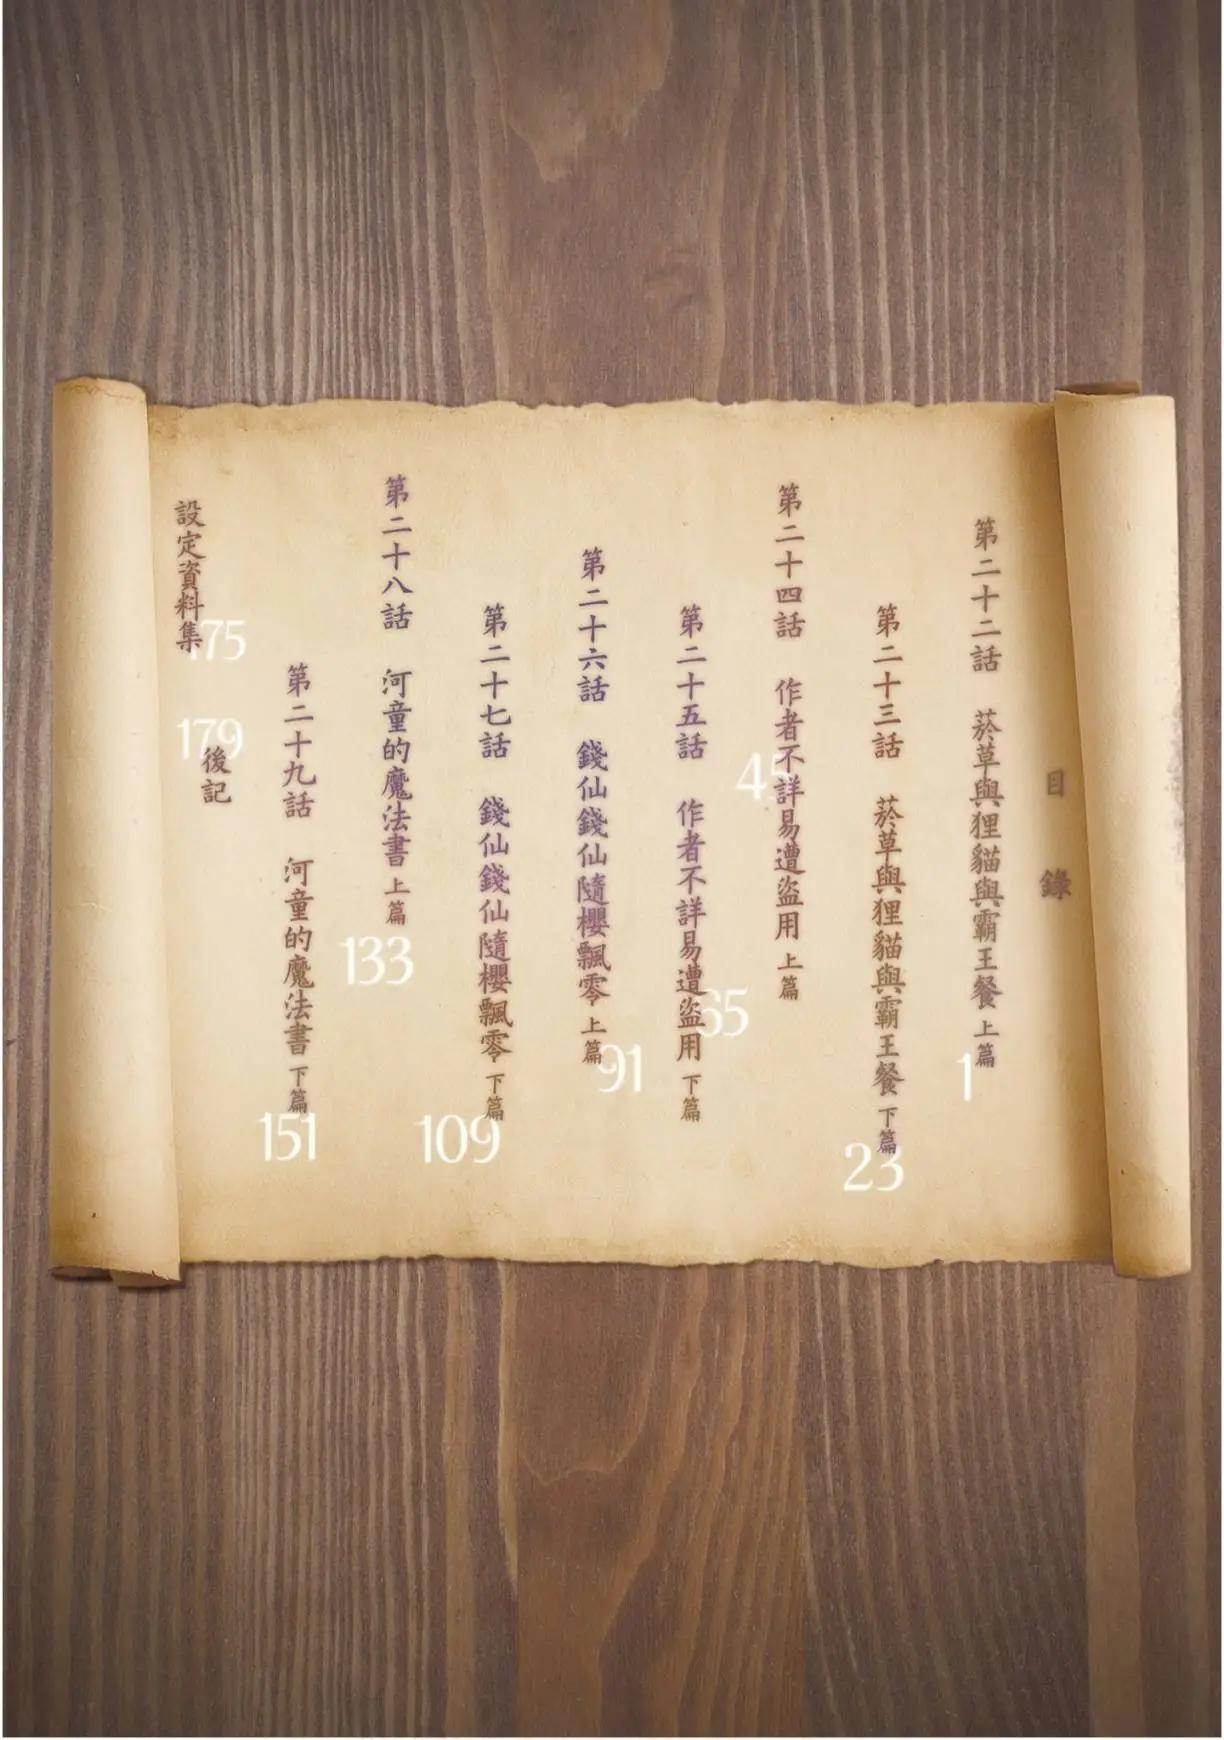 目錄
第二十二話 菸草與狸貓與霸王餐 上篇
1
第二十三話 菸草與狸貓與霸王餐 下篇
23
第二十四話 作者不詳易遭盜用 上篇
45
第二十五話 作者不詳易遭盜用 下篇
65
第二十六話 錢仙錢仙隨櫻飄零 上篇
91
第二十七話 錢仙錢仙隨櫻飄零 下篇
109
第二十八話 河童的魔法書 上篇
133
第二十九話 河童的魔法書 下篇
151
設定資料集
175
後記
179